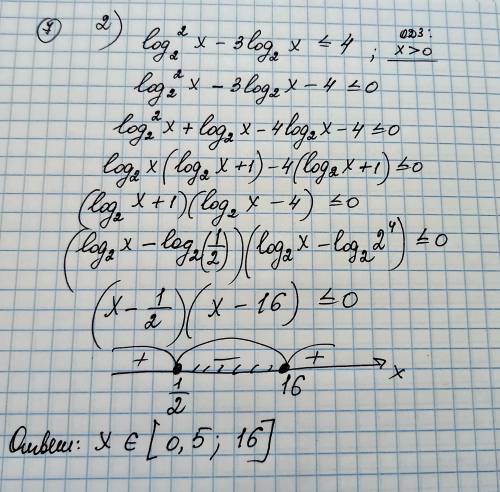 ⑦ 2) log₂²x - 3log₂x ≤ 4 ; ОДЗ: x>0
log₂²x - 3log₂x - 4 ≤ 0
log₂²x + log₂x - 4log₂x - 4 ≤ 0
log₂x(log₂x+1) - 4(log₂x+1) ≤ 0
(log₂x+1)(log₂x - 4) ≤ 0
(log₂x - log₂(1/2))(log₂x - log₂2⁴) ≤ 0
(x - 1/2)(x - 16) ≤ 0
+ - +
1/2 16 x
Ответ: x ∈ [0,5; 16]